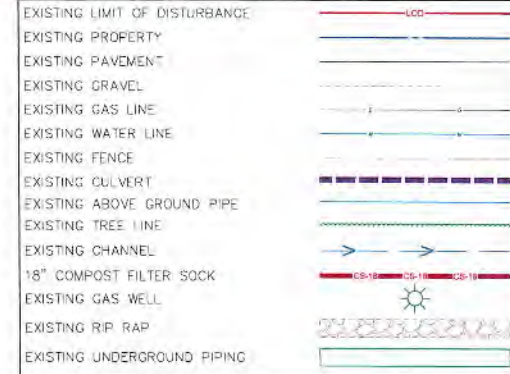 EXISTING LIMIT OF DISTURBANCE LOD
EXISTING PROPERTY
EXISTING PAVEMENT
EXISTING GRAVEL
EXISTING GAS LINE G
EXISTING WATER LINE W W
EXISTING FENCE
EXISTING CULVERT
EXISTING ABOVE GROUND PIPE
EXISTING TREE LINE
EXISTING CHANNEL
18" COMPOST FILTER SOCK CS-18 CS-18 CS-18
EXISTING GAS WELL
EXISTING RIP RAP
EXISTING UNDERGROUND PIPING